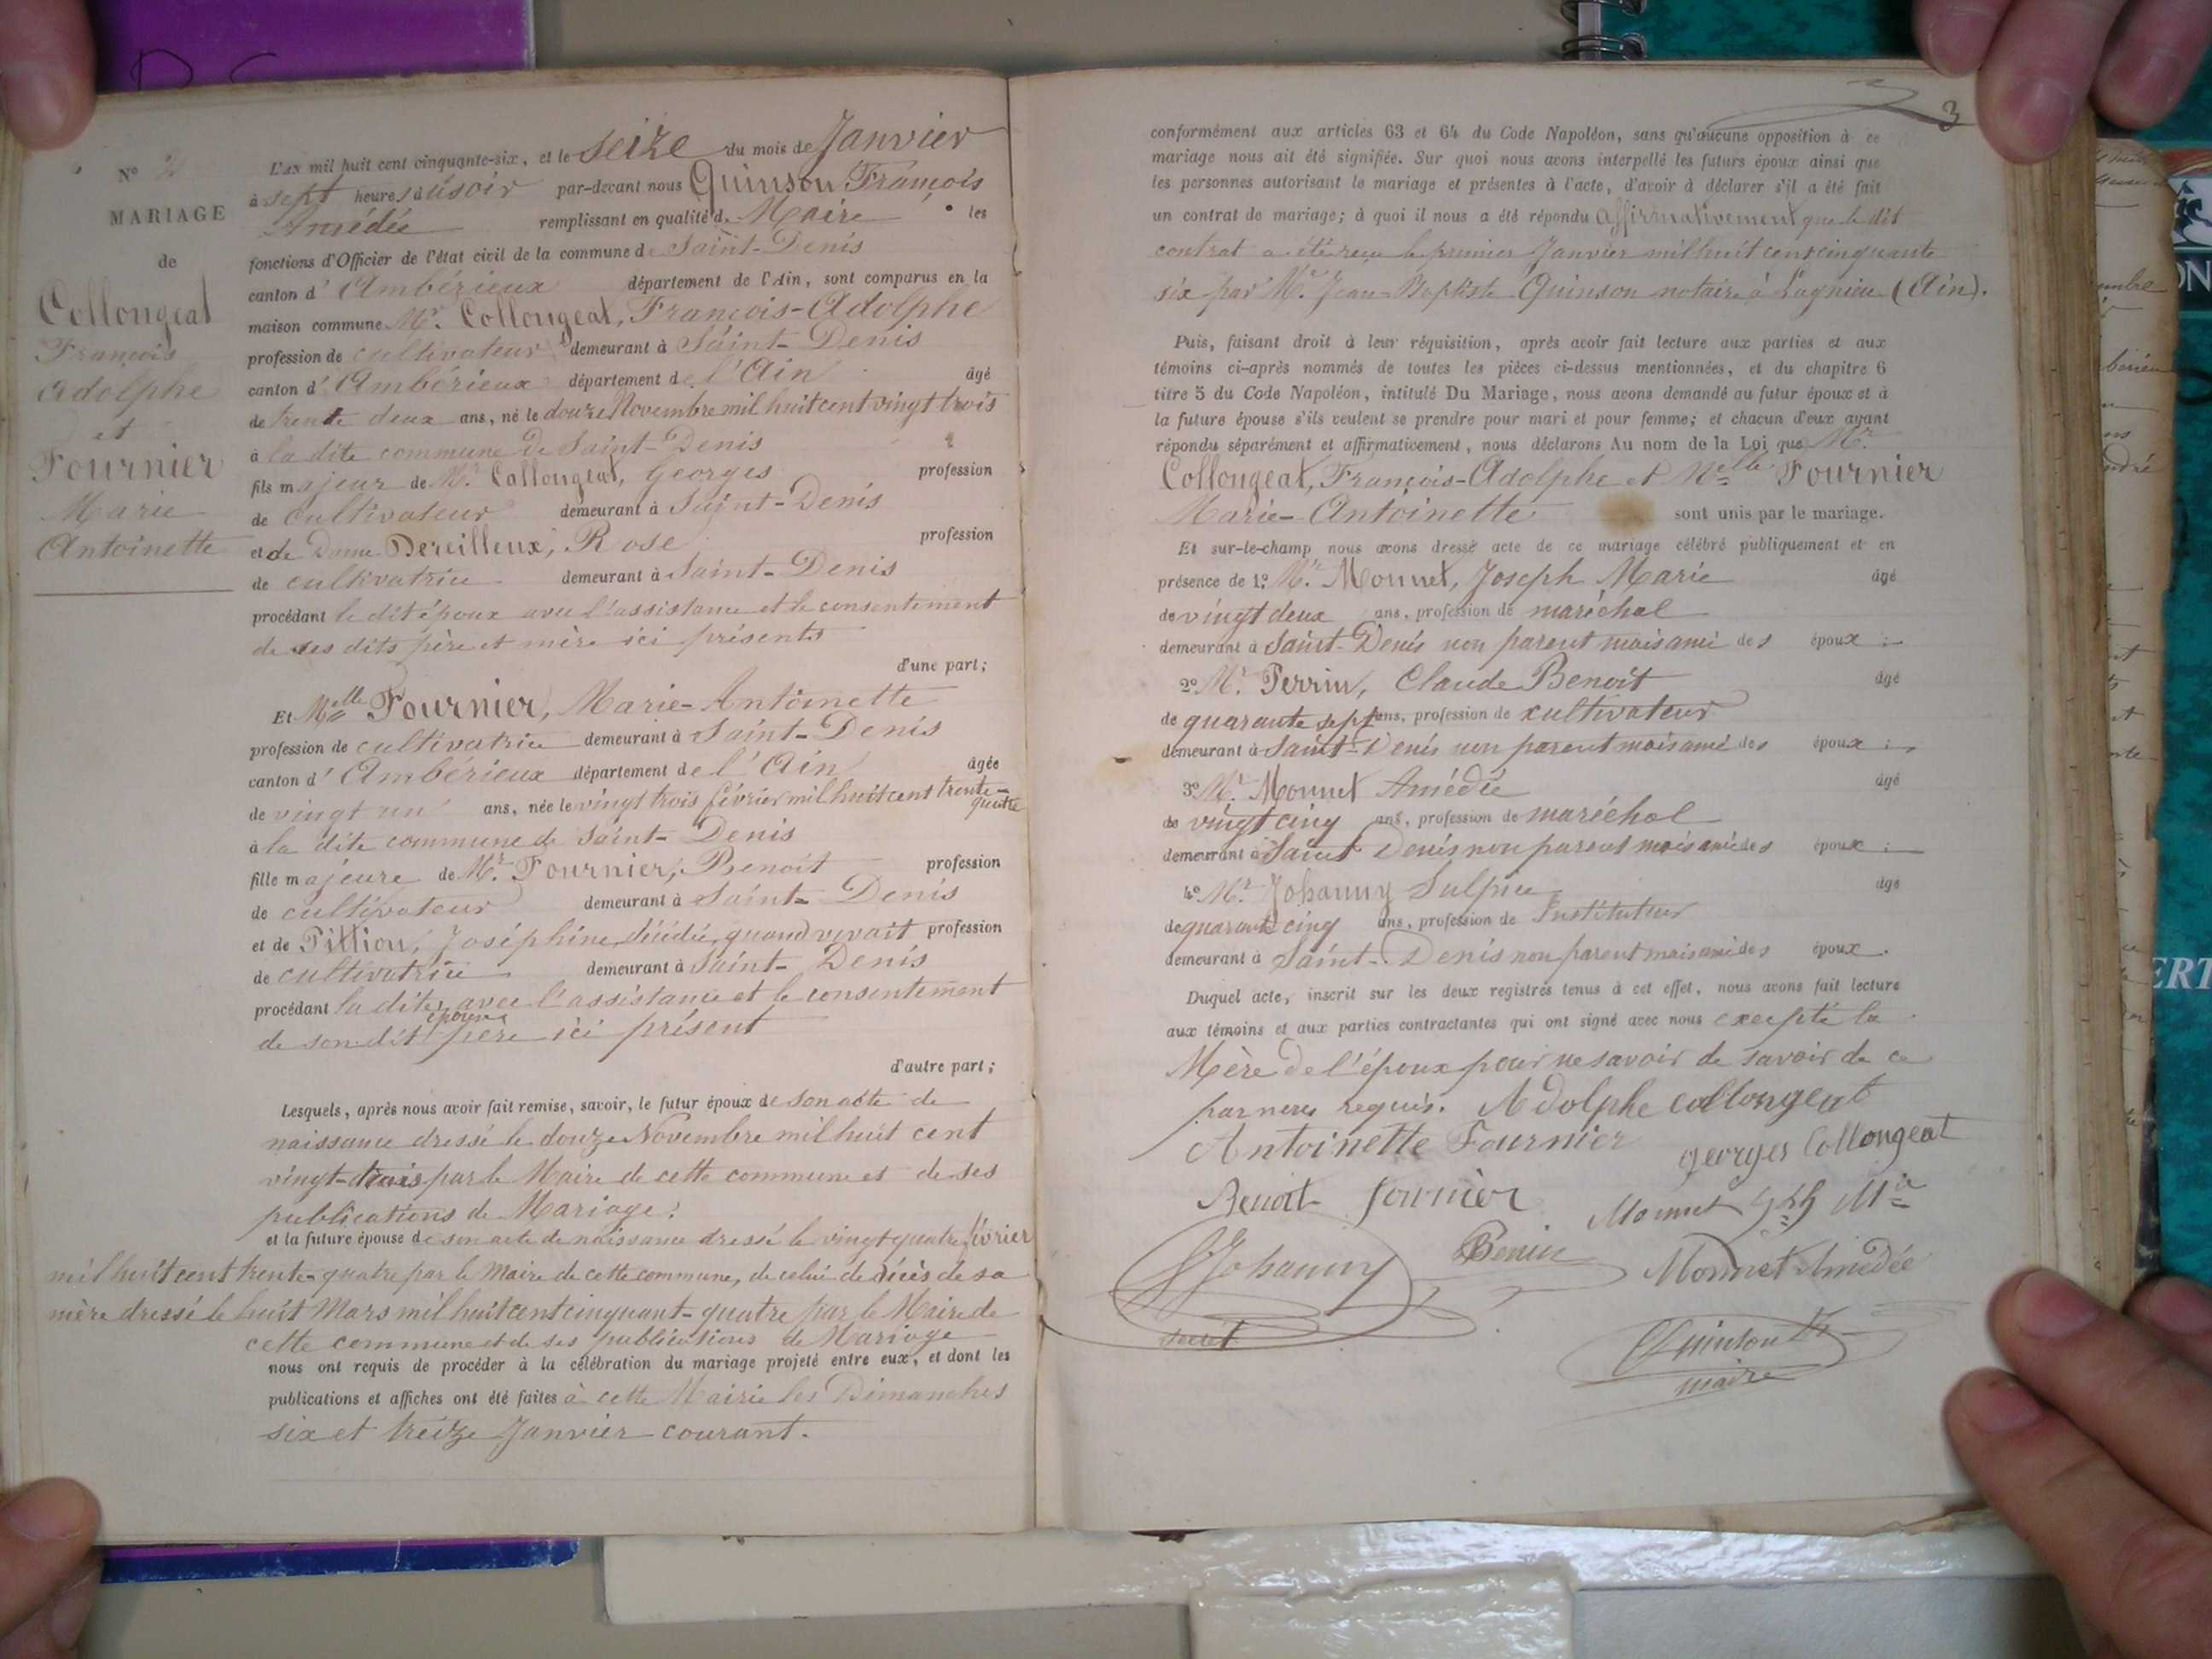 Nº 2
MARIAGE
de
Collongeat
François
Adolphe
et
Fournier
Marie
Antoinette
L'an mil huit cent cinquante-six, et le seize du mois de Janvier
à sept heures du soir par-devant nous Quinson François
Amédée remplissant en qualité de Maire les
fonctions d'Officier de l'état civil de la commune de Saint-Denis
canton d'Ambérieux département de l'Ain, sont comparus en la
maison commune Mr. Collongeat, François-Adolphe
profession de cultivateur demeurant à Saint-Denis
canton d'Ambérieux département de l'Ain âgé
de trente deux ans, né le douze Novembre mil huit cent vingt trois
à la dite commune de Saint-Denis
fils majeur de Mr. Collongeat, Georges profession
de cultivateur demeurant à Saint-Denis
et de Dame Dereilleux, Rose profession
de cultivatrice demeurant à Saint-Denis
procédant le dit époux avec l'assistance et le consentement
de ses dits père et mère ici présents
d'une part;
Et Melle Fournier, Marie-Antoinette
profession de cultivatrice demeurant à Saint-Denis
canton d'Ambérieux département de l'Ain âgée
de vingt un ans, née le vingt trois février mil huit cent trente-quatre
à la dite commune de Saint-Denis
fille majeure de Mr. Fournier, Benoit profession
de cultivateur demeurant à Saint-Denis
et de Pittion, Joséphine, décédée, quand vivait profession
de cultivatrice demeurant à Saint-Denis
procédant la dite épouse avec l'assistance et le consentement
de son dit père ici présent
d'autre part;
Lesquels, après nous avoir fait remise, savoir, le futur époux de son acte de
naissance dressé le douze Novembre mil huit cent
vingt-trois par le Maire de cette commune et de ses
publications de Mariage;
et la future épouse de son acte de naissance dressé le vingt quatre février
mil huit cent trente-quatre par le Maire de cette commune, de celui de décès de sa
mère dressé le huit Mars mil huit cent cinquant-quatre par le Maire de
cette commune et de ses publications de Mariage
nous ont requis de procéder à la célébration du mariage projeté entre eux, et dont les
publications et affiches ont été faites à cette Mairie les Dimanches
six et treize Janvier courant.
3
conformément aux articles 63 et 64 du Code Napoléon, sans qu'aucune opposition à ce
mariage nous ait été signifiée. Sur quoi nous avons interpellé les futurs époux ainsi que
les personnes autorisant le mariage et présentes à l'acte, d'avoir à déclarer s'il a été fait
un contrat de mariage; à quoi il nous a été répondu affirmativement que le dit
contrat a été reçu le premier Janvier mil huit cent cinquante
six par Me. Jean-Baptiste Quinson notaire à Lagnieu (Ain).
Puis, faisant droit à leur réquisition, après avoir fait lecture aux parties et aux
témoins ci-après nommés de toutes les pièces ci-dessus mentionnées, et du chapitre 6
titre 5 du Code Napoléon, intitulé Du Mariage, nous avons demandé au futur époux et à
la future épouse s'ils veulent se prendre pour mari et pour femme; et chacun d'eux ayant
répondu séparément et affirmativement, nous déclarons Au nom de la Loi que Mr.
Collongeat, François-Adolphe et Melle Fournier
Marie-Antoinette sont unis par le mariage.
Et sur-le-champ nous avons dressé acte de ce mariage célébré publiquement et en
présence de 1º Mr. Monnet, Joseph Marie âgé
de vingt deux ans, profession de maréchal
demeurant à Saint-Denis non parent mais ami des époux;
2º Mr. Perrin, Claude Benoît âgé
de quarante sept ans, profession de cultivateur
demeurant à Saint-Denis non parent mais ami des époux;
3º Mr. Monnet Amédée âgé
de vingt cinq ans, profession de maréchal
demeurant à Saint Denis non parent mais ami des époux;
4º Mr. Johanny Sulpice âgé
de quarante cinq ans, profession de Instituteur
demeurant à Saint-Denis non parent mais ami des époux.
Duquel acte, inscrit sur les deux registres tenus à cet effet, nous avons fait lecture
aux témoins et aux parties contractantes qui ont signé avec nous excepté la
Mère de l'époux pour ne savoir de savoir de ce
par nous requis. Adolphe collongeat
Antoinette Fournier georges Collongeat
Benoit fournier Monnet Jph Mie
SJohanny Monnet Amédée
secret
Quinson
maire